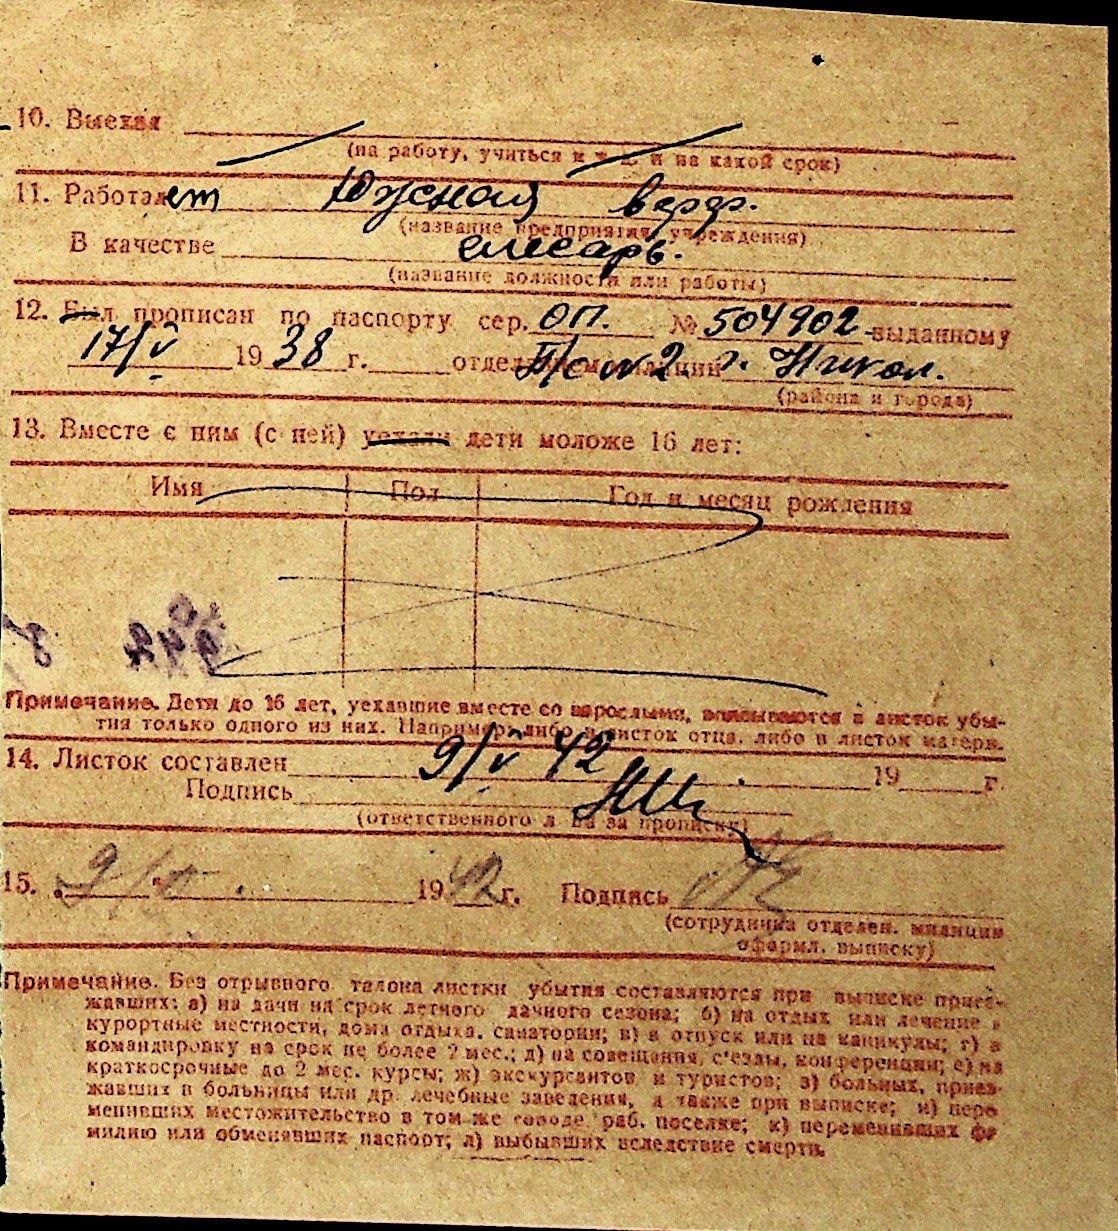 10. Выехал
(на работу, учиться и т. д. и на какой срок)
11. Работает Южная верф.
(название предприятия, учреждения)
В качестве слесарь.
(название должности или работы)
12. Был прописан по паспорту сер. ОП. № 504902 выданному
17/V 1938 г. отделением милиции П/С № 2 г. Никол.
(района и города)
13. Вместе с ним (с ней) уехали дети моложе 16 лет:
Имя Пол Год и месяц рождения
Примечание. Дети до 16 лет, уехавшие вместе со взрослыми, вписываются в листок убы-
тия только одного из них. Например: либо в листок отца, либо в листок матери.
14. Листок составлен 9/V 42 19 г.
Подпись
(ответственного лица за прописку)
15. 9/V 1942 г. Подпись
(сотрудника отделен. милиции
оформл. выписку)
Примечание. Без отрывного талона листки убытия составляются при выписке приез-
жавших: а) на дачи на срок летнего дачного сезона; б) на отдых или лечение в
курортные местности, дома отдыха, санатории; в) в отпуск или на каникулы; г) в
командировку на срок не более 2 мес.; д) на совещания, с'езды, конференции; е) на
краткосрочные до 2 мес. курсы; ж) экскурсантов и туристов; з) больных, приез-
жавших в больницы или др. лечебные заведения, а также при выписке; и) пере
менивших местожительство в том же городе, раб. поселке; к) переменивших фа
милию или обменявших паспорт; л) выбывших вследствие смерти.